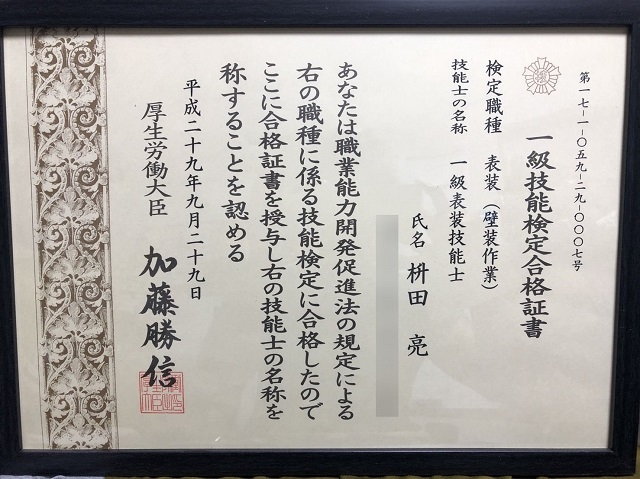 第一七-一-〇五九-二九-〇〇〇七号
一級技能検定合格証書
検定職種 表装(壁装作業)
技能士の名称 一級表装技能士
氏名 枡田 亮
あなたは職業能力開発促進法の規定による
右の職種に係る技能検定に合格したので
ここに合格証書を授与し右の技能士の名称を
称することを認める
平成二十九年九月二十九日
厚生労働大臣 加藤勝信